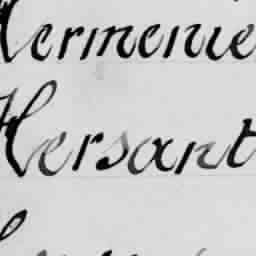 Hermenie
Hersant